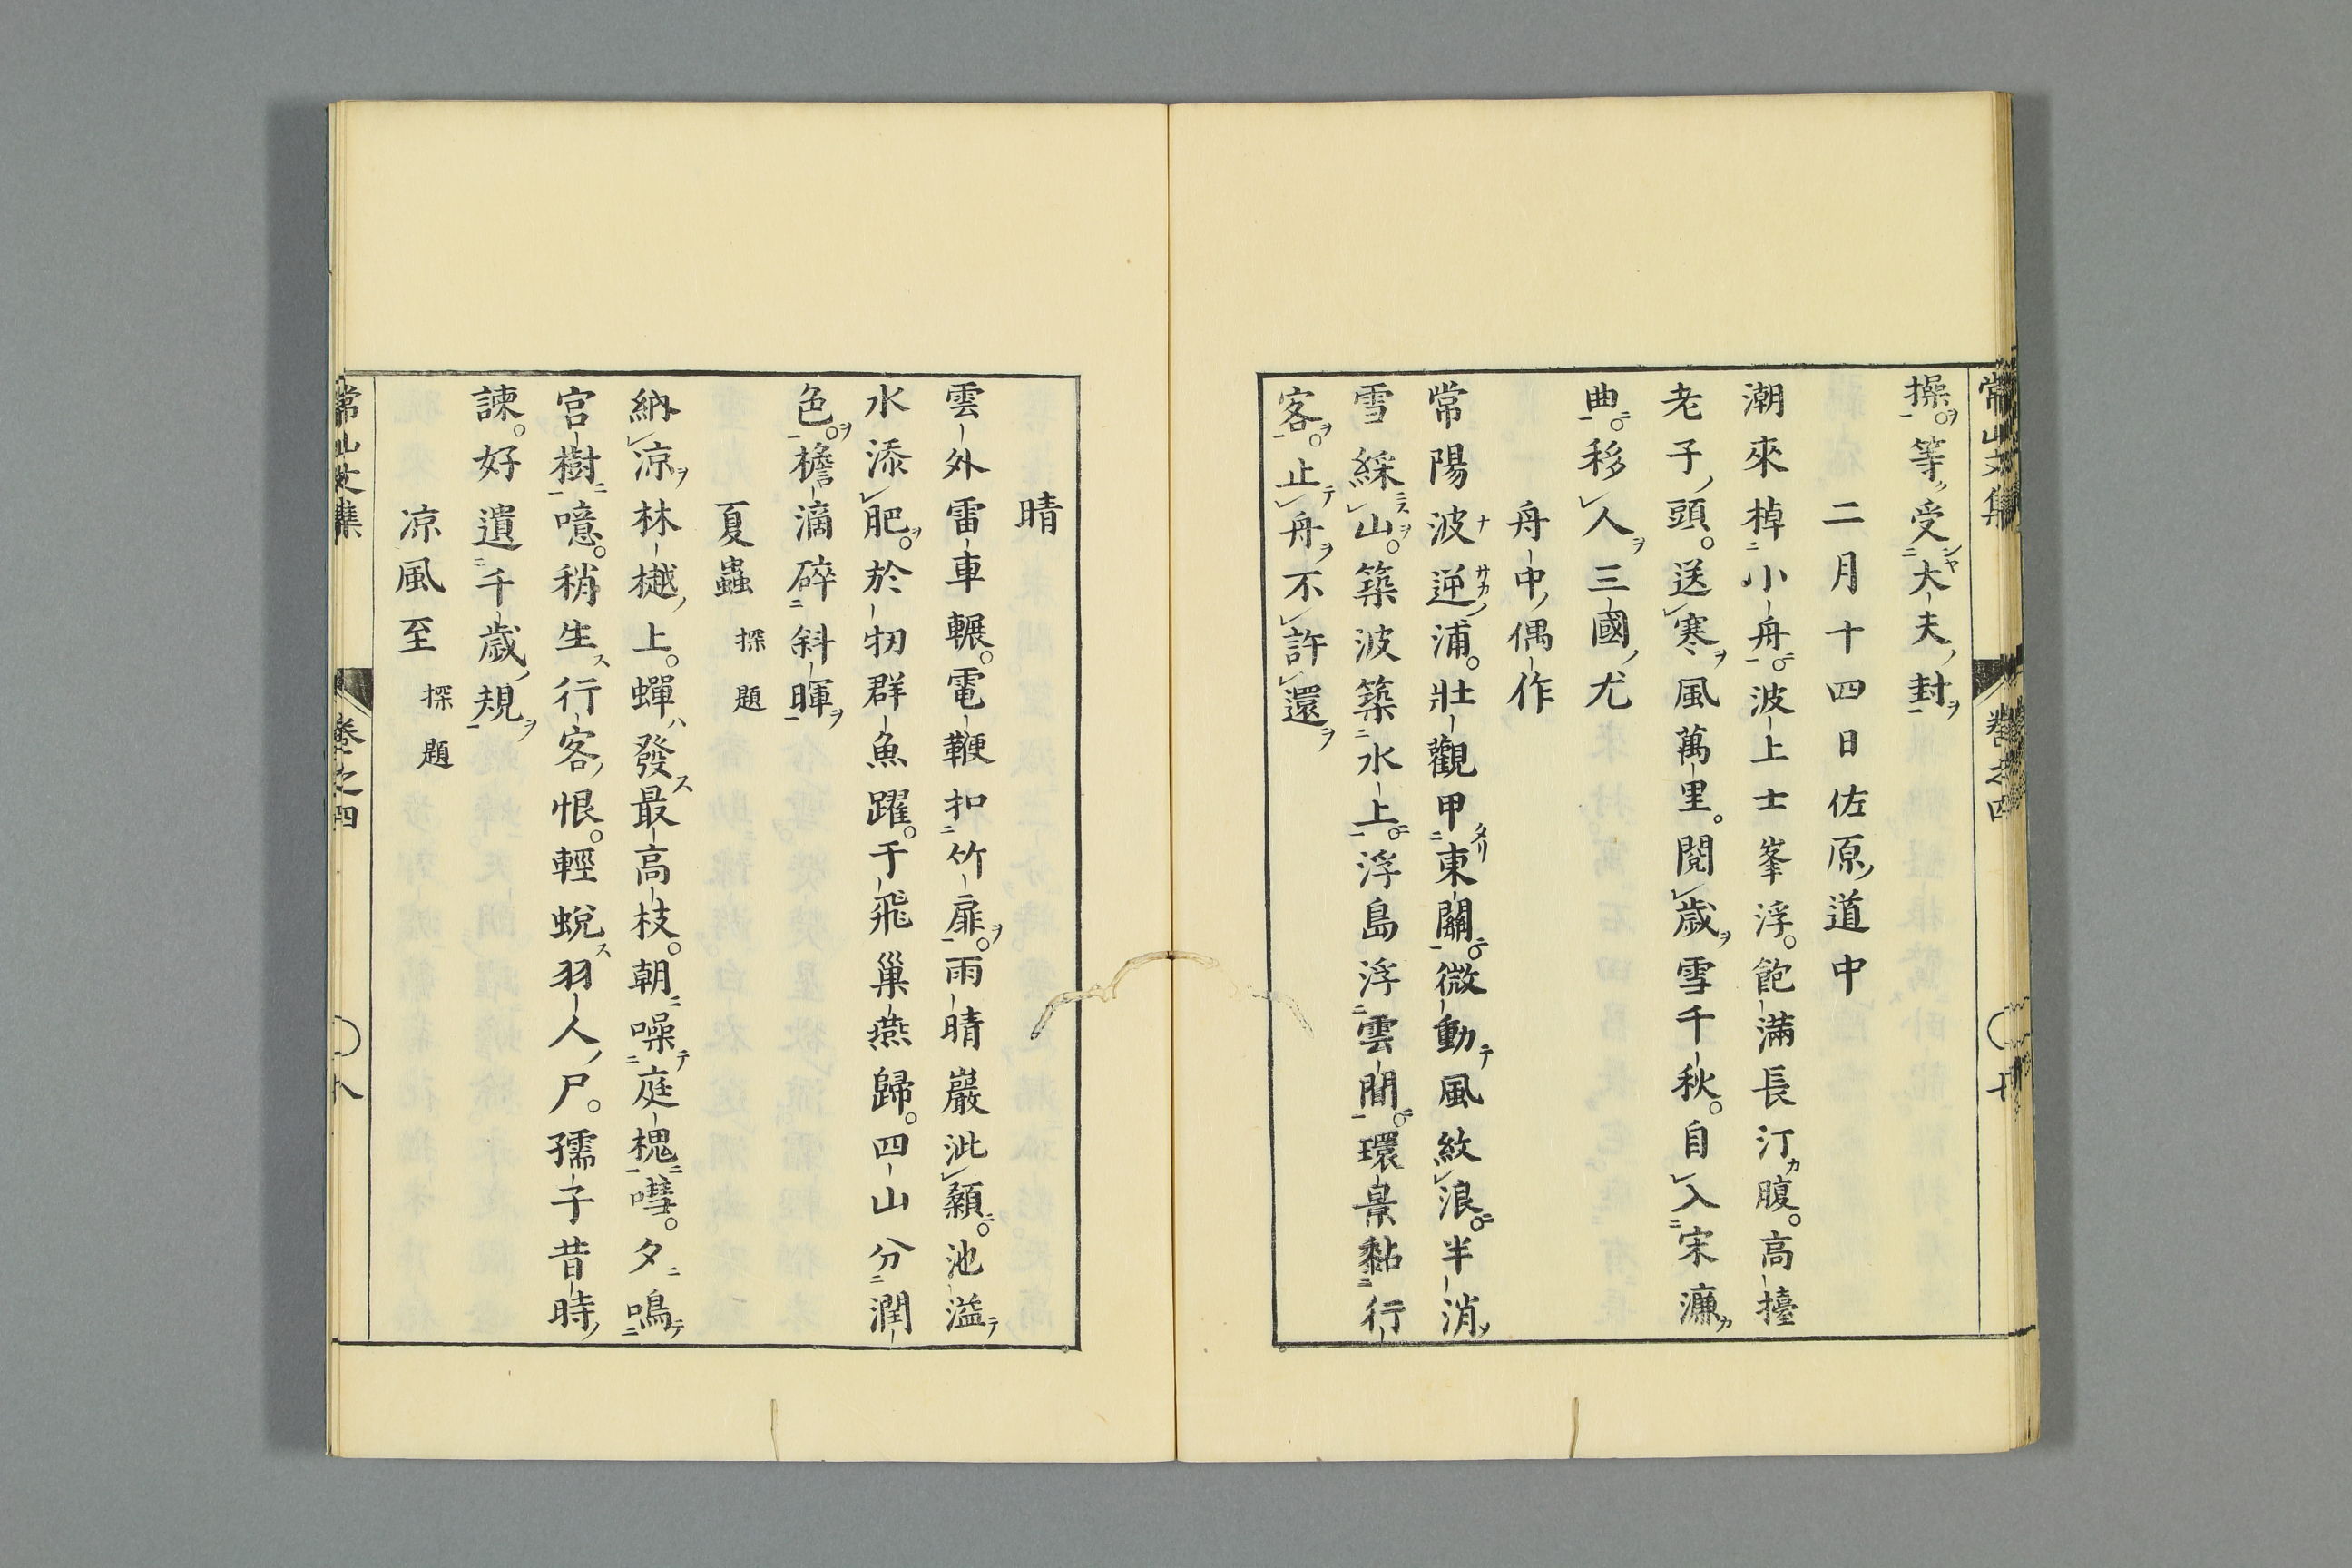 常山文集 卷之四
操等受大夫封
二月十四日佐原道中
潮來棹小舟波上士峯浮飽滿長汀腹高擡
老子頭送寒風萬里閱歲雪千秋自入宋濂
曲移人三國尤
舟中偶作
常陽波逆浦壯觀甲東關微動風紋浪半消
雪綵山築波築水上浮島浮雲間環景黏行
客止舟不許還
晴
雲外雷車輾電鞭扣竹扉雨晴巖泚顙池溢
水添肥於牣群魚躍于飛巢燕歸四山分潤
色檐滴碎斜暉
夏蟲 探題
納凉林樾上蟬發最高枝朝噪庭槐嘒夕鳴
宮樹噫稍生行客恨輕蛻羽人尸孺子昔時
諫好遺千歲規
凉風至 探題
常山文集 卷之四 十八